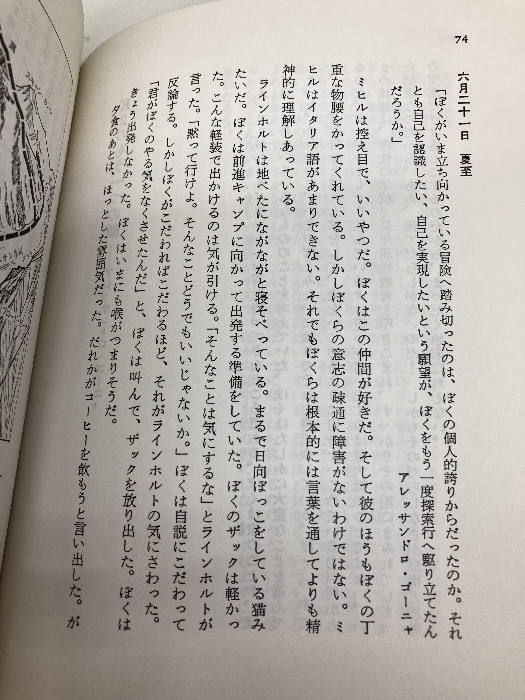 74
六月二十一日　夏至
「ぼくがいま立ち向かっている冒険へ踏み切ったのは、ぼくの個人的誇りからだったのか。それ
とも自己を認識したい、自己を実現したいという願望が、ぼくをもう一度探索行へ駆り立てたん
だろうか。」
アレッサンドロ・ゴーニャ
ミヒルは控え目で、いいやつだ。ぼくはこの仲間が好きだ。そして彼のほうもぼくの丁
重な物腰をかってくれている。しかしぼくらの意志の疎通に障害がないわけではない。ミ
ヒルはイタリア語があまりできない。それでもぼくらは根本的には言葉を通してよりも精
神的に理解しあっている。
ラインホルトは地べたにながながと寝そべっている。まるで日向ぼっこをしている猫み
たいだ。ぼくは前進キャンプに向かって出発する準備をしていた。ぼくのザックは軽かっ
た。こんな軽装で出かけるのは気が引ける。「そんなことは気にするな」とラインホルトが
言った。「黙って行けよ。そんなことどうでもいいじゃないか。」ぼくは自説にこだわって
反論する。しかしぼくがこだわればこだわるほど、それがラインホルトの気にさわった。
「君がぼくのやる気をなくさせたんだ」と、ぼくは叫んで、ザックを放り出した。ぼくは
きょう出発しなかった。ぼくはいまにも喉がつまりそうだ。
夕食のあとは、ほっとした雰囲気だった。だれかがコーヒーを飲もうと言い出した。が